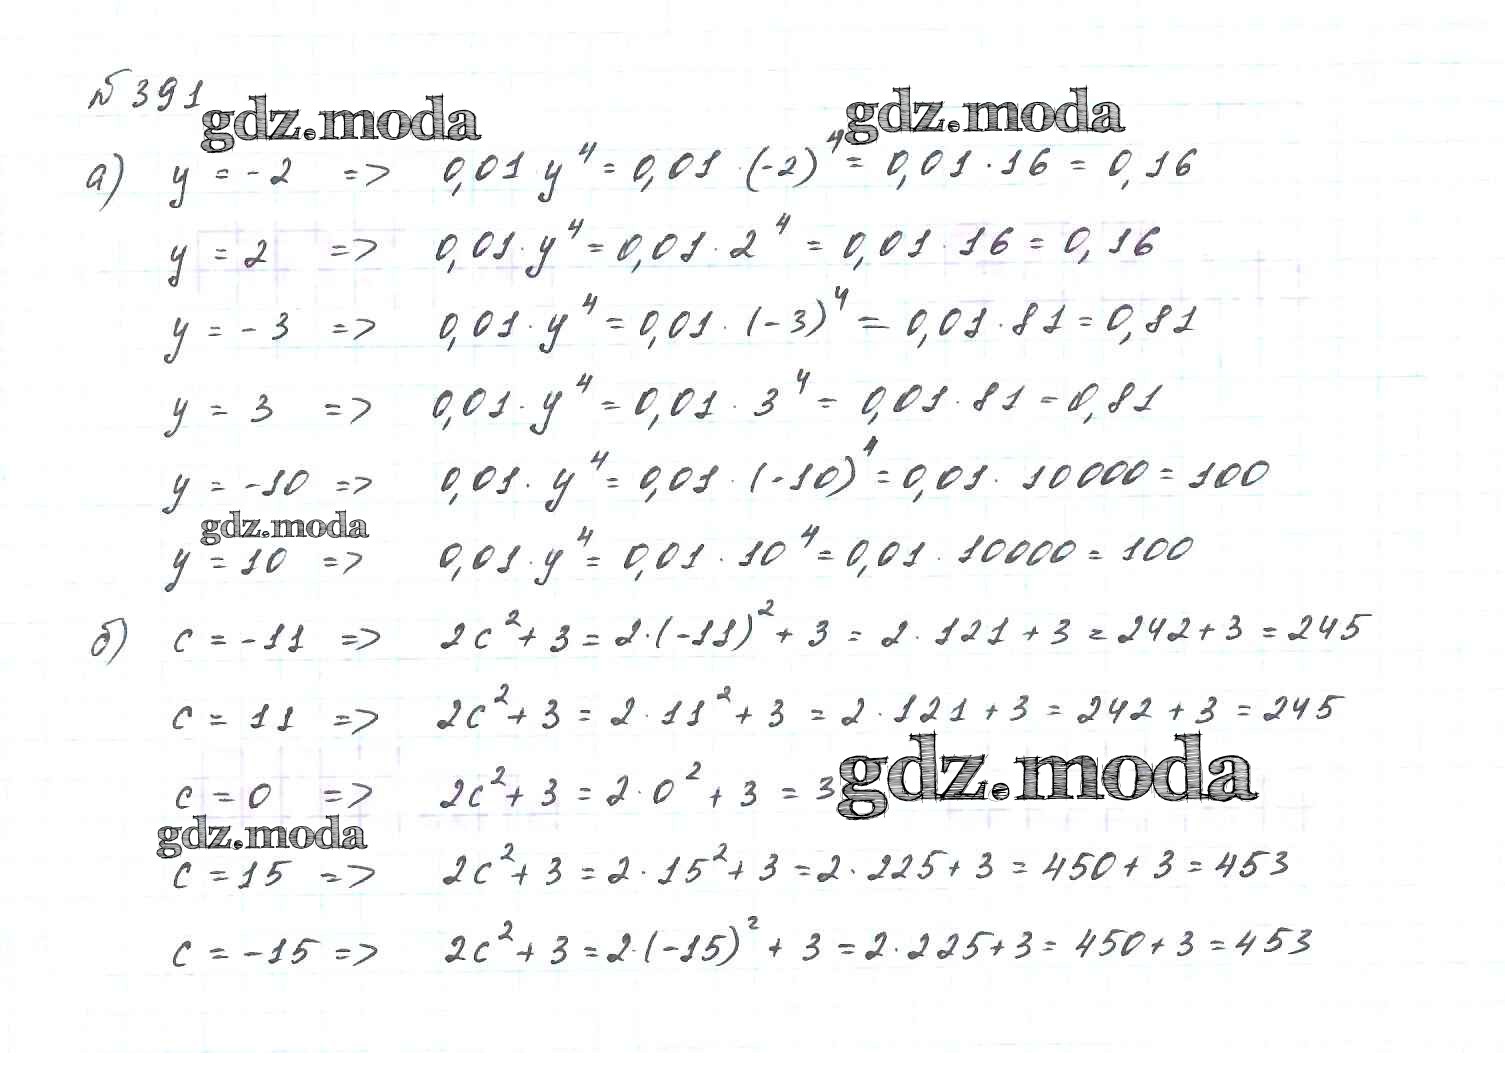 № 391
gdz.moda gdz.moda
а) y = -2 => 0,01 y⁴ = 0,01 · (-2)⁴ = 0,01 · 16 = 0,16
y = 2 => 0,01 · y⁴ = 0,01 · 2⁴ = 0,01 · 16 = 0,16
y = -3 => 0,01 · y⁴ = 0,01 · (-3)⁴ = 0,01 · 81 = 0,81
y = 3 => 0,01 · y⁴ = 0,01 · 3⁴ = 0,01 · 81 = 0,81
y = -10 => 0,01 · y⁴ = 0,01 · (-10)⁴ = 0,01 · 10000 = 100
gdz.moda
y = 10 => 0,01 · y⁴ = 0,01 · 10⁴ = 0,01 · 10000 = 100
б) c = -11 => 2c² + 3 = 2 · (-11)² + 3 = 2 · 121 + 3 = 242 + 3 = 245
c = 11 => 2c² + 3 = 2 · 11² + 3 = 2 · 121 + 3 = 242 + 3 = 245
c = 0 => 2c² + 3 = 2 · 0² + 3 = 3 gdz.moda
gdz.moda
c = 15 => 2c² + 3 = 2 · 15² + 3 = 2 · 225 + 3 = 450 + 3 = 453
c = -15 => 2c² + 3 = 2 · (-15)² + 3 = 2 · 225 + 3 = 450 + 3 = 453